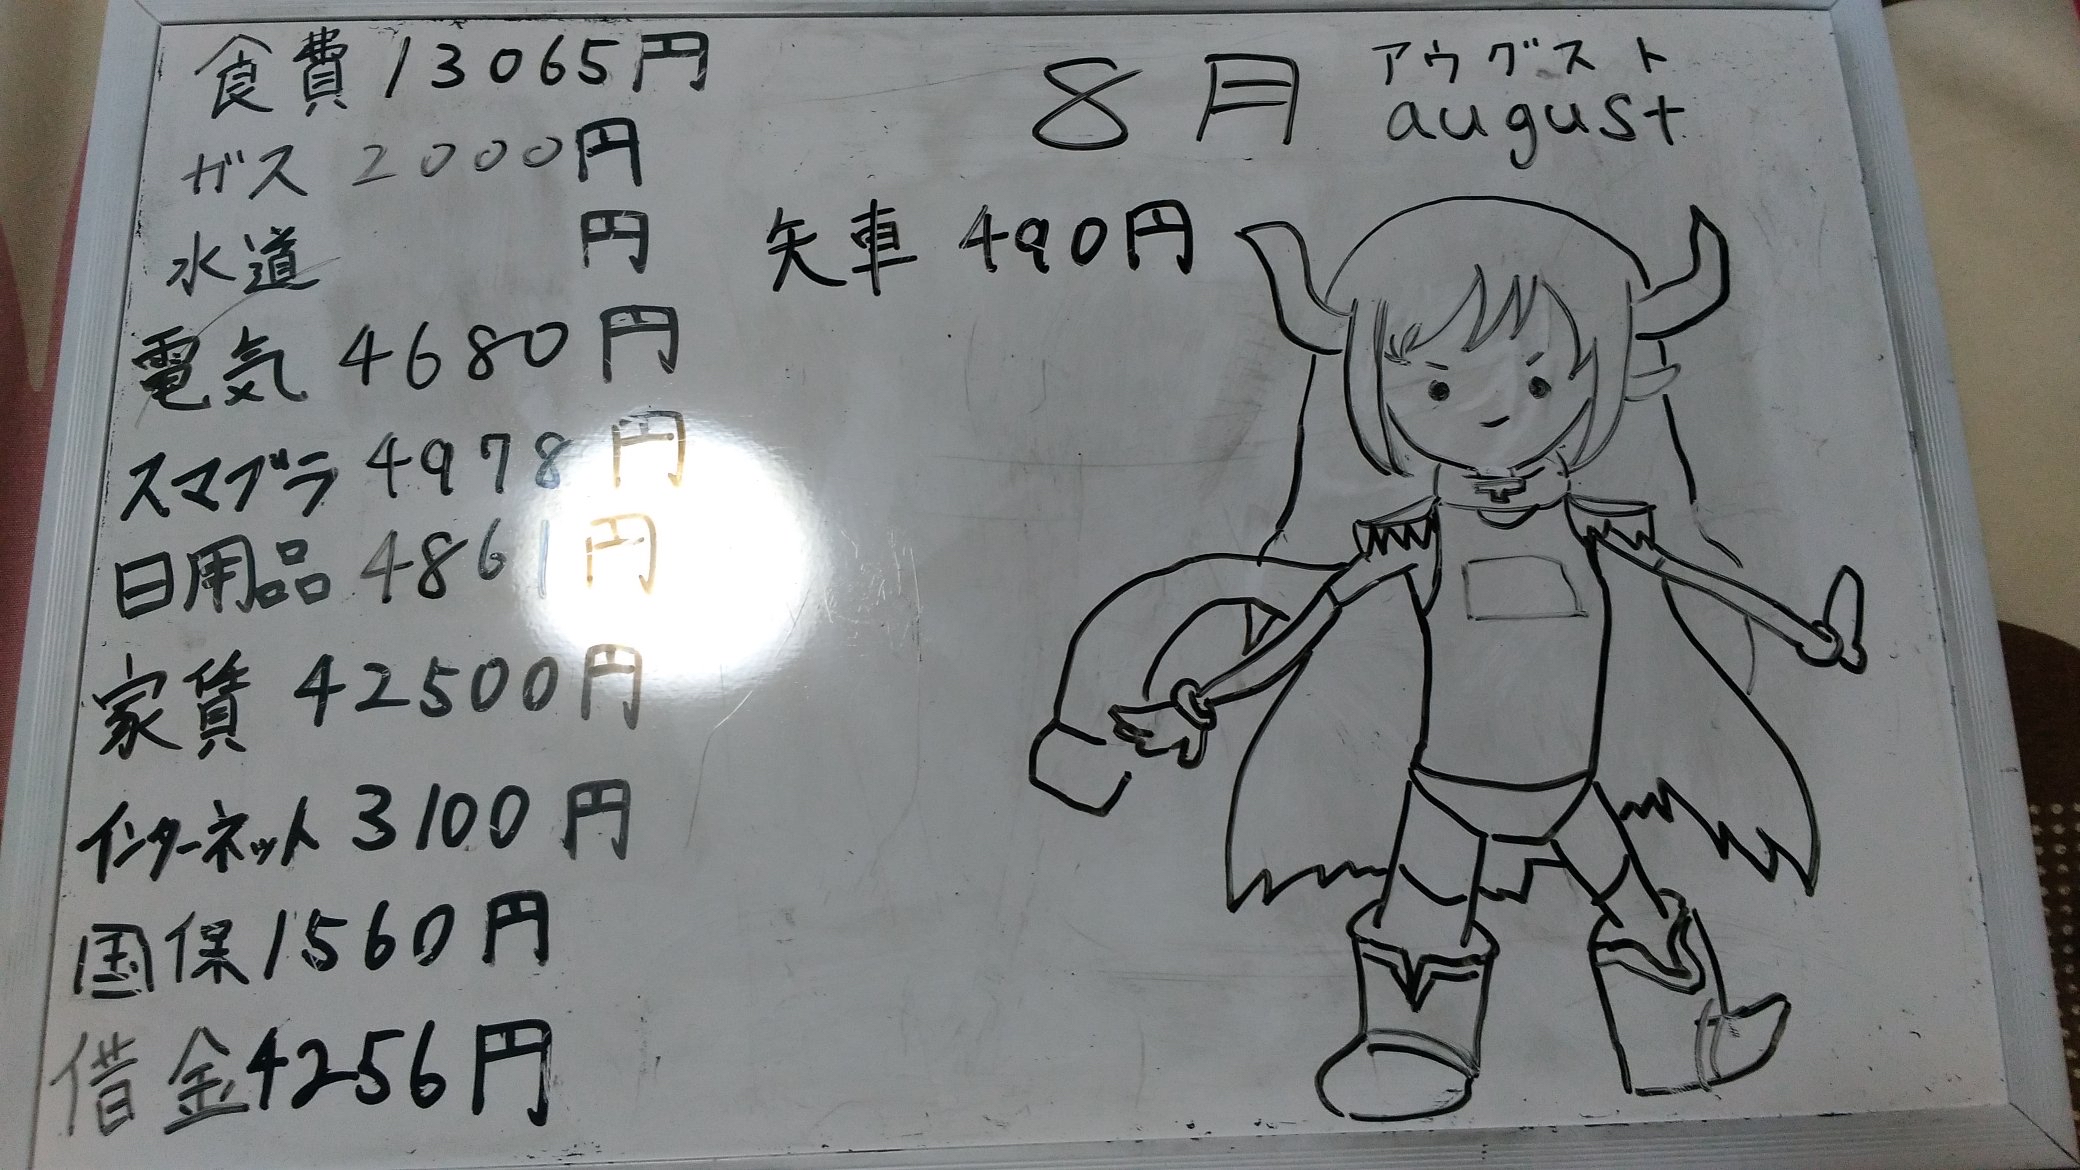 食費 13065円
ガス 2000円
水道 円
電気 4680円
スマブラ 4978円
日用品 4861円
家賃 42500円
インターネット 3100円
国保 1560円
借金 4256円
8月
アウグスト
august
矢車 490円